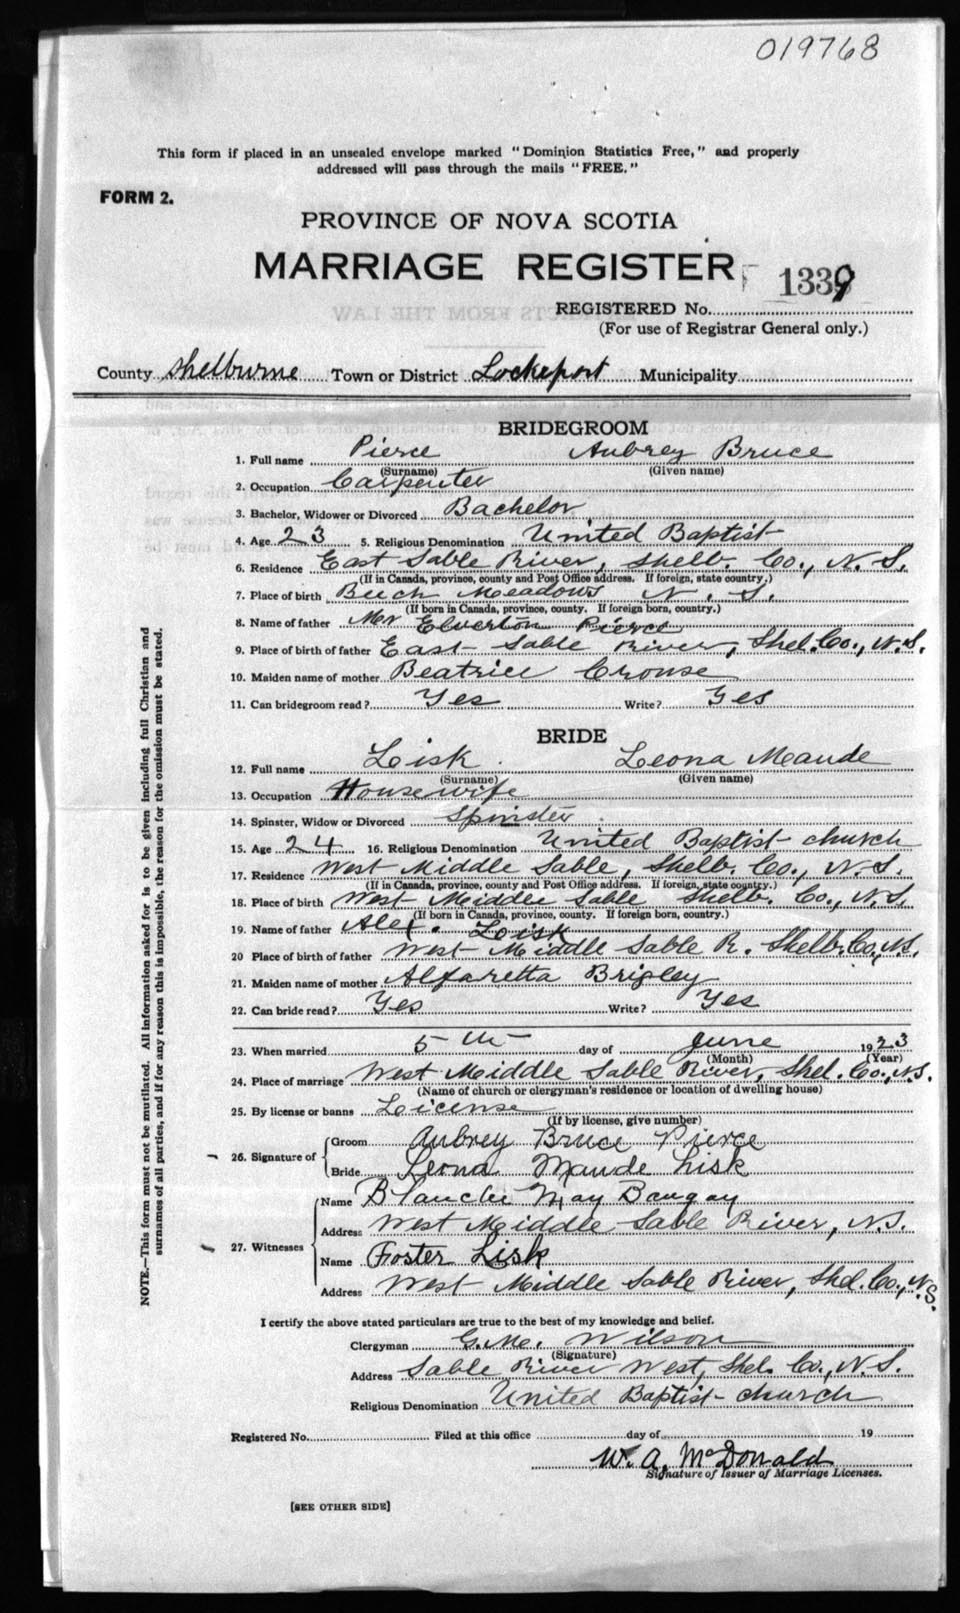 019768
This form if placed in an unsealed envelope marked "Dominion Statistics Free," and properly
addressed will pass through the mails "FREE."
FORM 2.
PROVINCE OF NOVA SCOTIA
MARRIAGE REGISTER
1339
REGISTERED No.
(For use of Registrar General only.)
County Shelburne Town or District Lockeport Municipality
BRIDEGROOM
1. Full name Pierce Aubrey Bruce
(Surname) (Given name)
2. Occupation Carpenter
3. Bachelor, Widower or Divorced Bachelor
4. Age 23 5. Religious Denomination United Baptist
6. Residence East Sable River, Shelb. Co., N.S.
(If in Canada, province, county and Post Office address. If foreign, state country.)
7. Place of birth Beech Meadows N.S.
(If born in Canada, province, county. If foreign born, country.)
8. Name of father Mr Elverton Pierce
9. Place of birth of father East Sable River, Shel. Co., N.S.
10. Maiden name of mother Beatrice Crouse
11. Can bridegroom read? Yes Write? Yes
BRIDE
12. Full name Lisk Leona Maude
(Surname) (Given name)
13. Occupation Housewife
14. Spinster, Widow or Divorced Spinster
15. Age 24 16. Religious Denomination United Baptist church
17. Residence West Middle Sable, Shelb. Co., N.S.
(If in Canada, province, county and Post Office address. If foreign, state country.)
18. Place of birth West Middle Sable Shelb. Co., N.S.
(If born in Canada, province, county. If foreign born, country.)
19. Name of father Alex. Lisk
20 Place of birth of father West Middle Sable R. Shelb. Co., N.S.
21. Maiden name of mother Alfaretta Brigley
22. Can bride read? Yes Write? Yes
23. When married 5th day of June 1923
(Month) (Year)
24. Place of marriage West Middle Sable River, Shel. Co., N.S.
(Name of church or clergyman's residence or location of dwelling house)
25. By license or banns License
(If by license, give number)
26. Signature of Groom Aubrey Bruce Pierce
Bride Leona Maude Lisk
27. Witnesses Name Blanche May Bangay
Address West Middle Sable River, N.S.
Name Foster Lisk
Address West Middle Sable River, Shel. Co., N.S.
I certify the above stated particulars are true to the best of my knowledge and belief.
Clergyman G. M. Wilson
(Signature)
Address Sable River West, Shel. Co., N.S.
Religious Denomination United Baptist church
Registered No. Filed at this office day of 19
W. A. McDonald
Signature of Issuer of Marriage Licenses.
[SEE OTHER SIDE]
NOTE.—This form must not be mutilated. All information asked for is to be given including full Christian and
surnames of all parties, and if for any reason this is impossible, the reason for the omission must be stated.